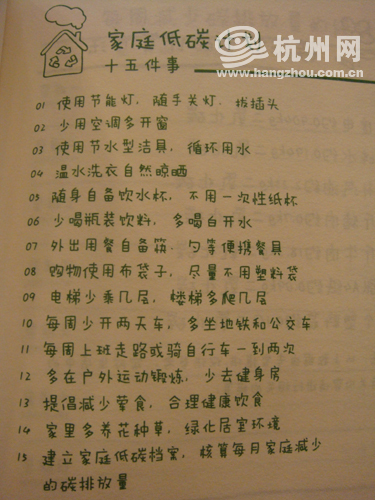 家庭低碳计划
杭州网
www.hangzhou.com.cn
十五件事
01 使用节能灯，随手关灯，拔插头
02 少用空调多开窗
03 使用节水型洁具，循环用水
04 温水洗衣自然晾晒
05 随身自备饮水杯，不用一次性纸杯
06 少喝瓶装饮料，多喝白开水
07 外出用餐自备筷、勺等便携餐具
08 购物使用布袋子，尽量不用塑料袋
09 电梯少乘几层，楼梯多爬几层
10 每周少开两天车，多坐地铁和公交车
11 每周上班走路或骑自行车一到两次
12 多在户外运动锻炼，少去健身房
13 提倡减少荤食，合理健康饮食
14 家里多养花种草，绿化居室环境
15 建立家庭低碳档案，核算每月家庭减少
的碳排放量